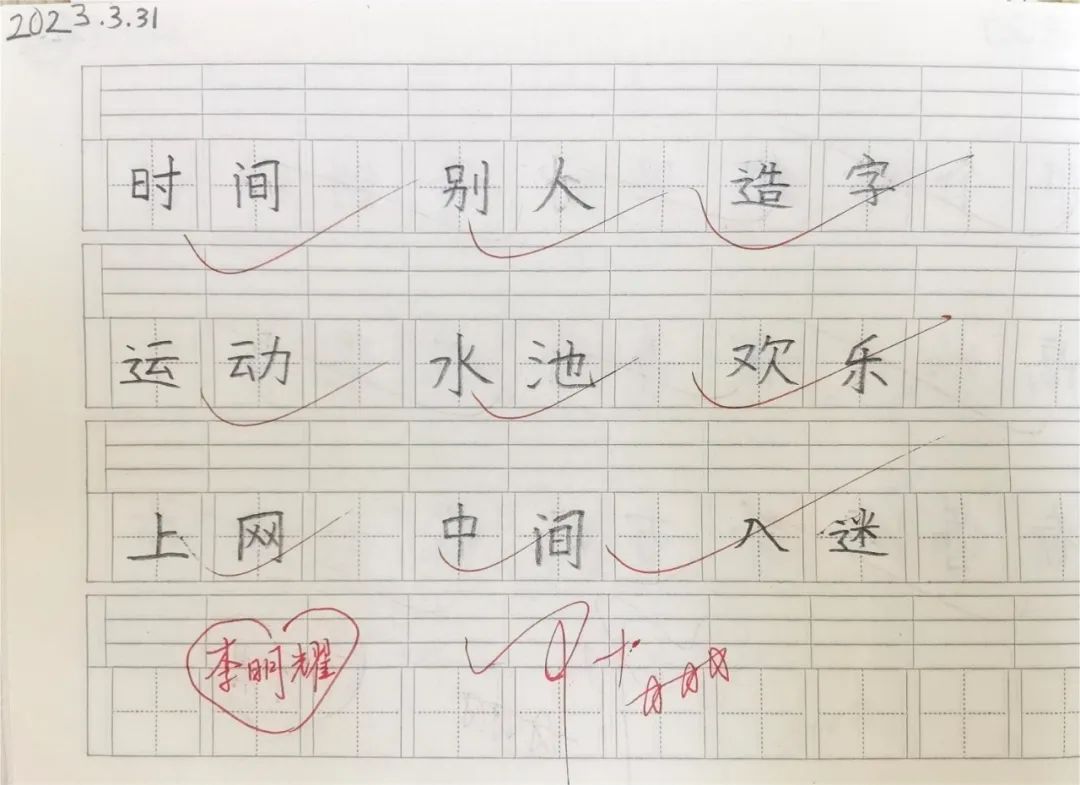 2023.3.31
时间 别人 造字
运动 水池 欢乐
上网 中间 入迷
李明耀